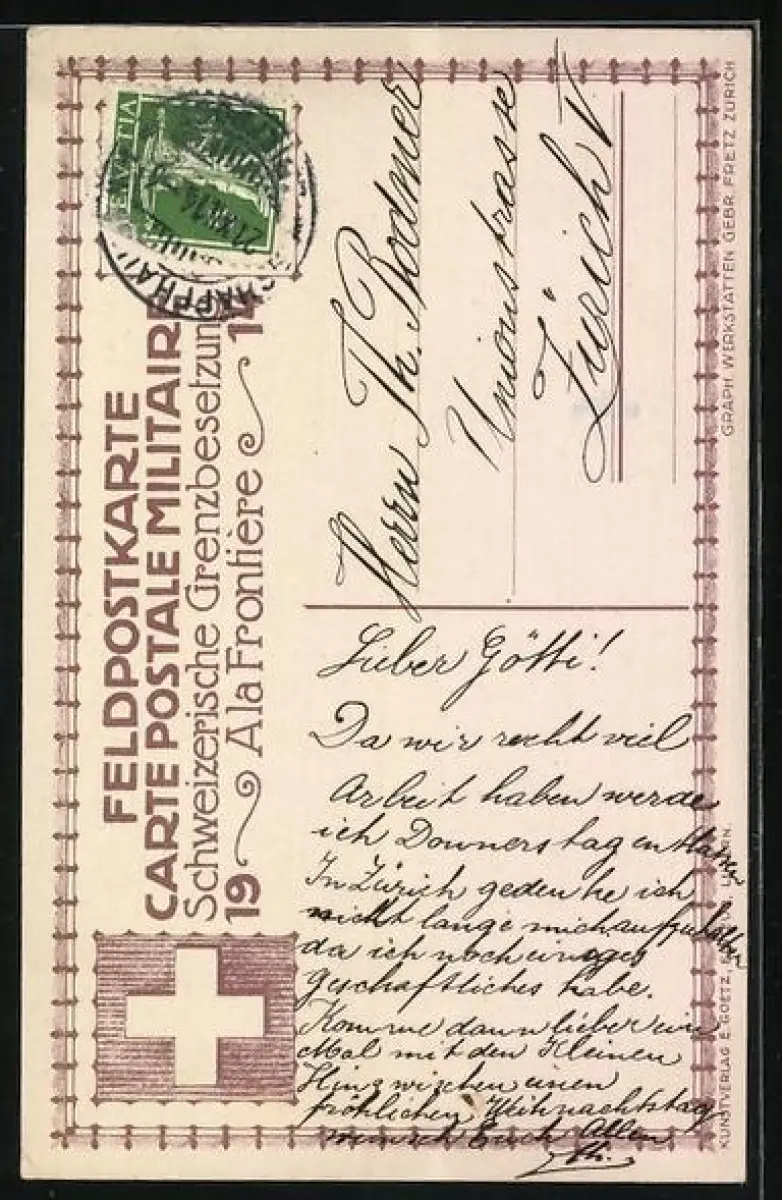 HELVETIA
SCHAFFHAU
21.XII.14
FELDPOSTKARTE
CARTE POSTALE MILITAIRE
Schweizerische Grenzbesetzun
19 A la Frontière 14
Herrn Th. Bodmer
Unionstrasse
Zürich V
GRAPH. WERKSTÄTTEN GEBR. FRETZ ZÜRICH
Lieber Götti!
Da wir recht viel
Arbeit haben werde
ich Donnerstag entlassen
In Zürich gedenke ich
nicht lange mich aufzuhalten
da ich noch einiges
Geschaftliches habe.
Komme dann lieber ein
Mal mit den Kleinen
Hinzwischen einen
fröhlichen Weihnachtstag
wünsch Euch Allen
Th.
KUNSTVERLAG E. GOETZ, LUZERN.